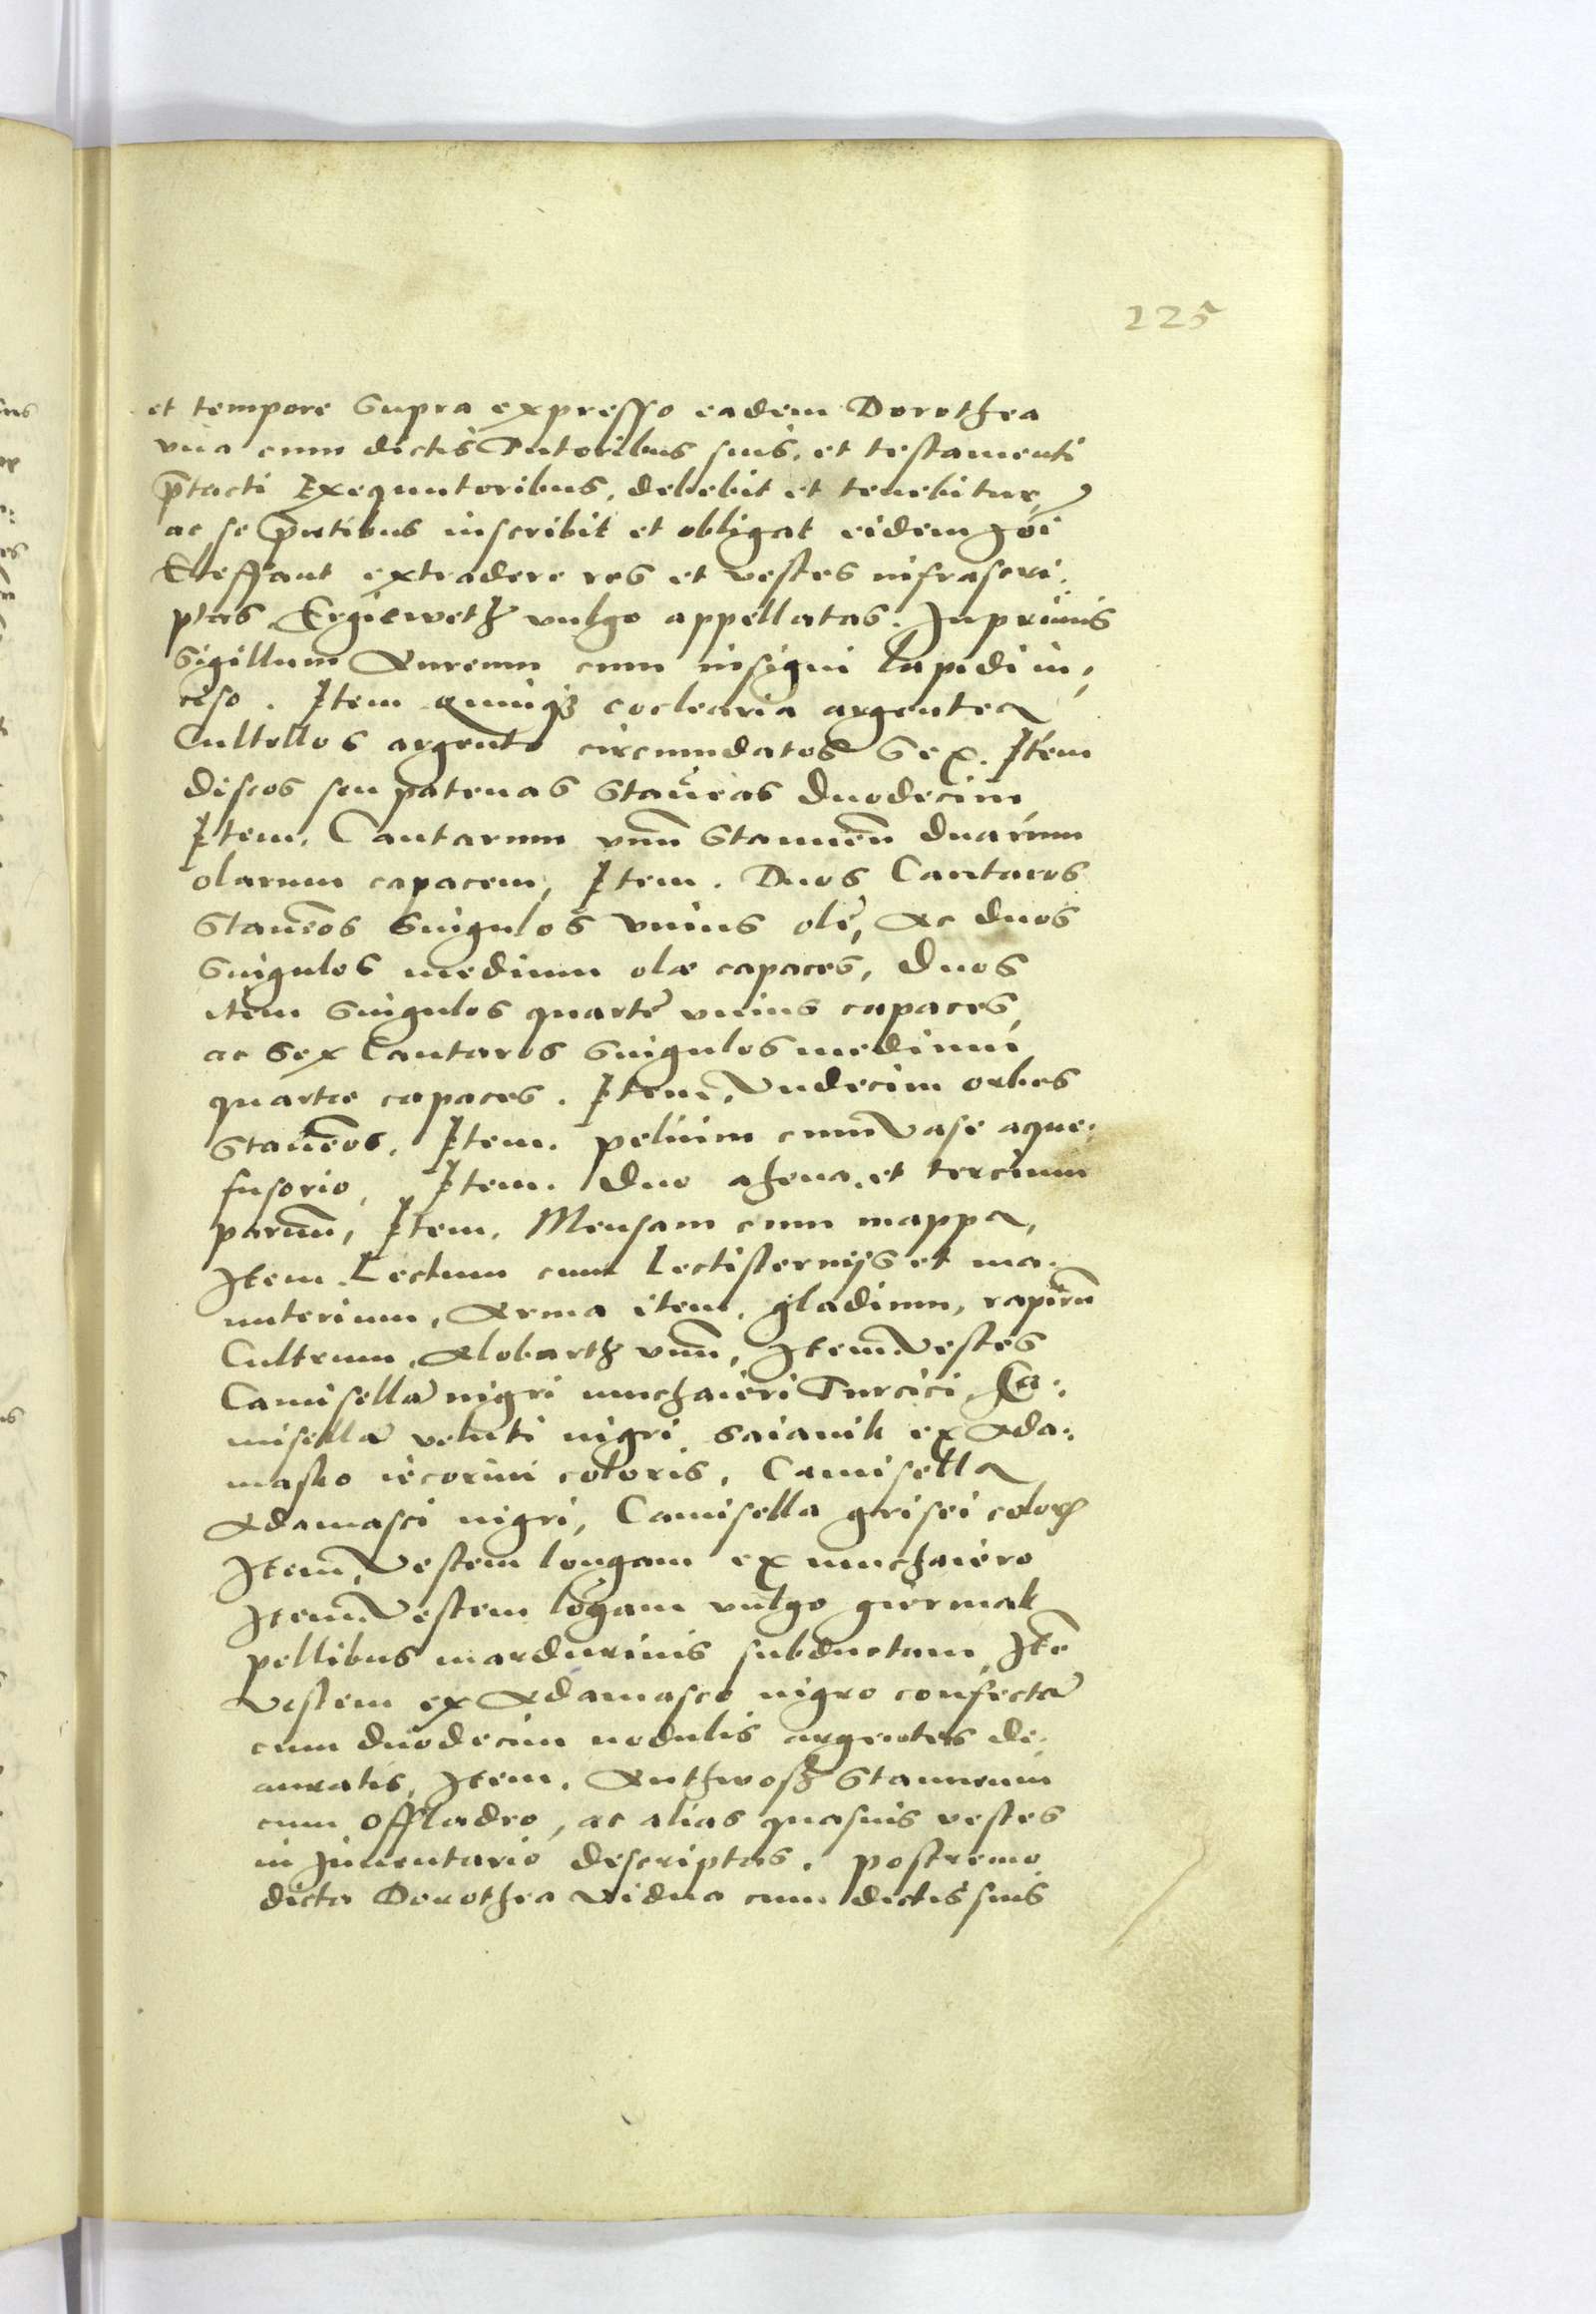 225
et tempore supra expresso eadem Dorothea
vna cum dictis Tutoribus suis, et testamenti
p̄tacti Exequutoribus, debebit et tenebitur,
ac se p̄ntibus inscribit et obligat eidem Joi
Eleffant extradere res et vestes infrascri:
ptas Hergieweth vulgo appellatas. Inprimis
Sigillum Aureum cum insigni lapidi in,
ciso. Item quinq₃ coclearia argentea
Cultellos argento circumdatos Sex. Item
discos seu patenas Stan̄eas duodecim
Item. Cantarum vnū Stanneū duarum
olarum capacem, Item. Duos Cantaros
Stan̄eos Singulos vnius olę, Ac duos
Singulos medium olæ capaces, duos
item Singulos quartę vnius capaces,
ac Sex Cantaros Singulos medium
quartæ capaces. Item. Vndecim orbes
Stan̄eos. Item. peluim cum Vase aque:
fusorio, Item. duo ahena. et tercium
paruū, Item. Mensam cum mappa,
Item Lectum cum Lectisternijs et ma:
nuterium, Arma item, gladium, rapirū
Cultrum, Alobarth vnū, Item. Vestes
Camisellā nigri muchaieri Turcici, Ca:
misellā veluti nigri, Saianik ex Ada:
masko iecorini coloris, Camisella
Adamasci nigri, Camisella grisei color̄
Item, Vestem longam ex muchaiero
Item. Vestem lōgam vulgo giermak
pellibus mardurinis subductam, Itē
Vestem ex Adamasco nigro confectā
cum duodecim nodulis argenteis de:
auratis, Item. Anthwosz Stanneum
cum Offladro, ac alias quasuis vestes
in Inuentario descriptas. postremo
dicta Dorothea Vidua cum dictis suis